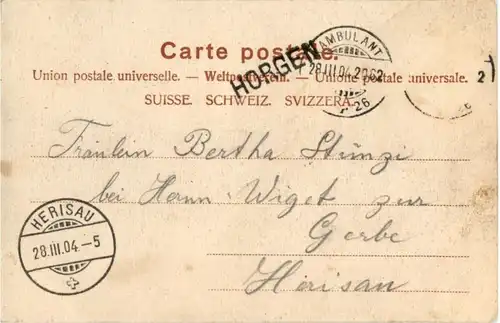 Carte postale.
HORGEN
AMBULANT
28.III.04
26
Union postale universelle. — Weltpostverein. — Unione postale universale.
2)
SUISSE. SCHWEIZ. SVIZZERA.
Fräulein Bertha Stünzi
bei Herrn Wiget zur
Gerbe
Herisau
HERISAU
28.III.04.-5